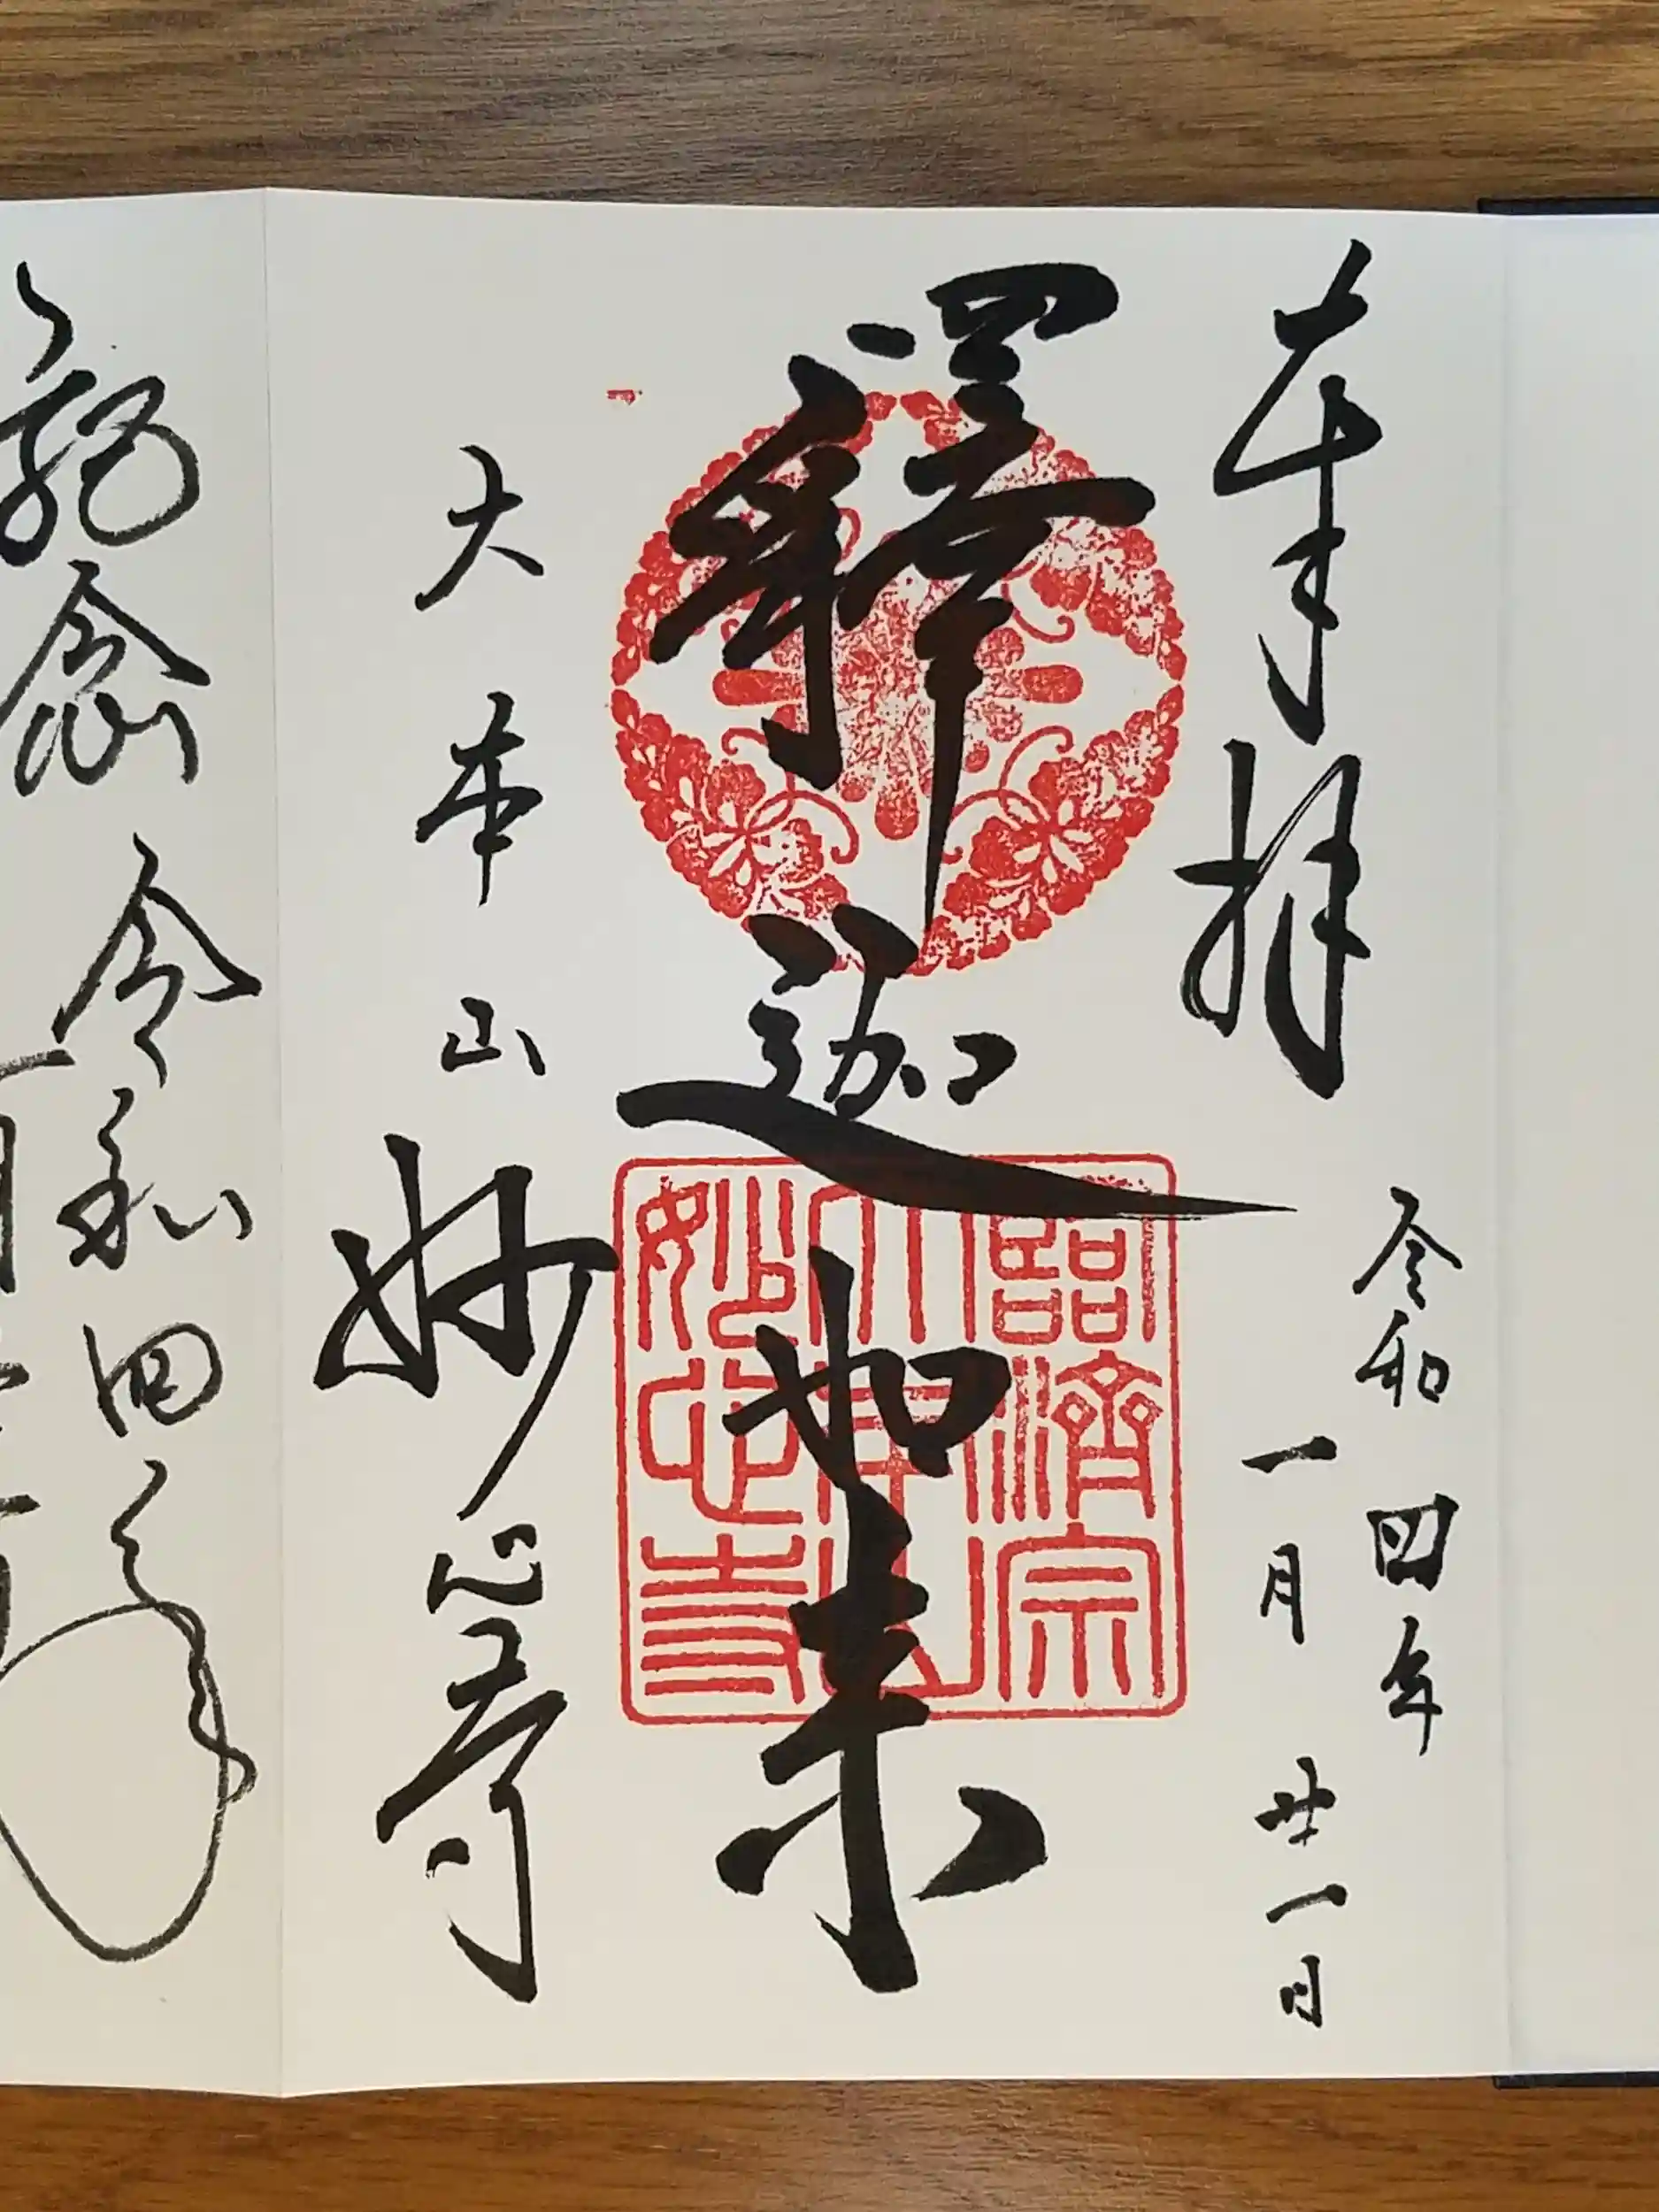 奉拝
令和四年
一月廿一日
釋迦如来
臨済宗
大本山
妙心寺
大本山
妙心寺
念
令和四年